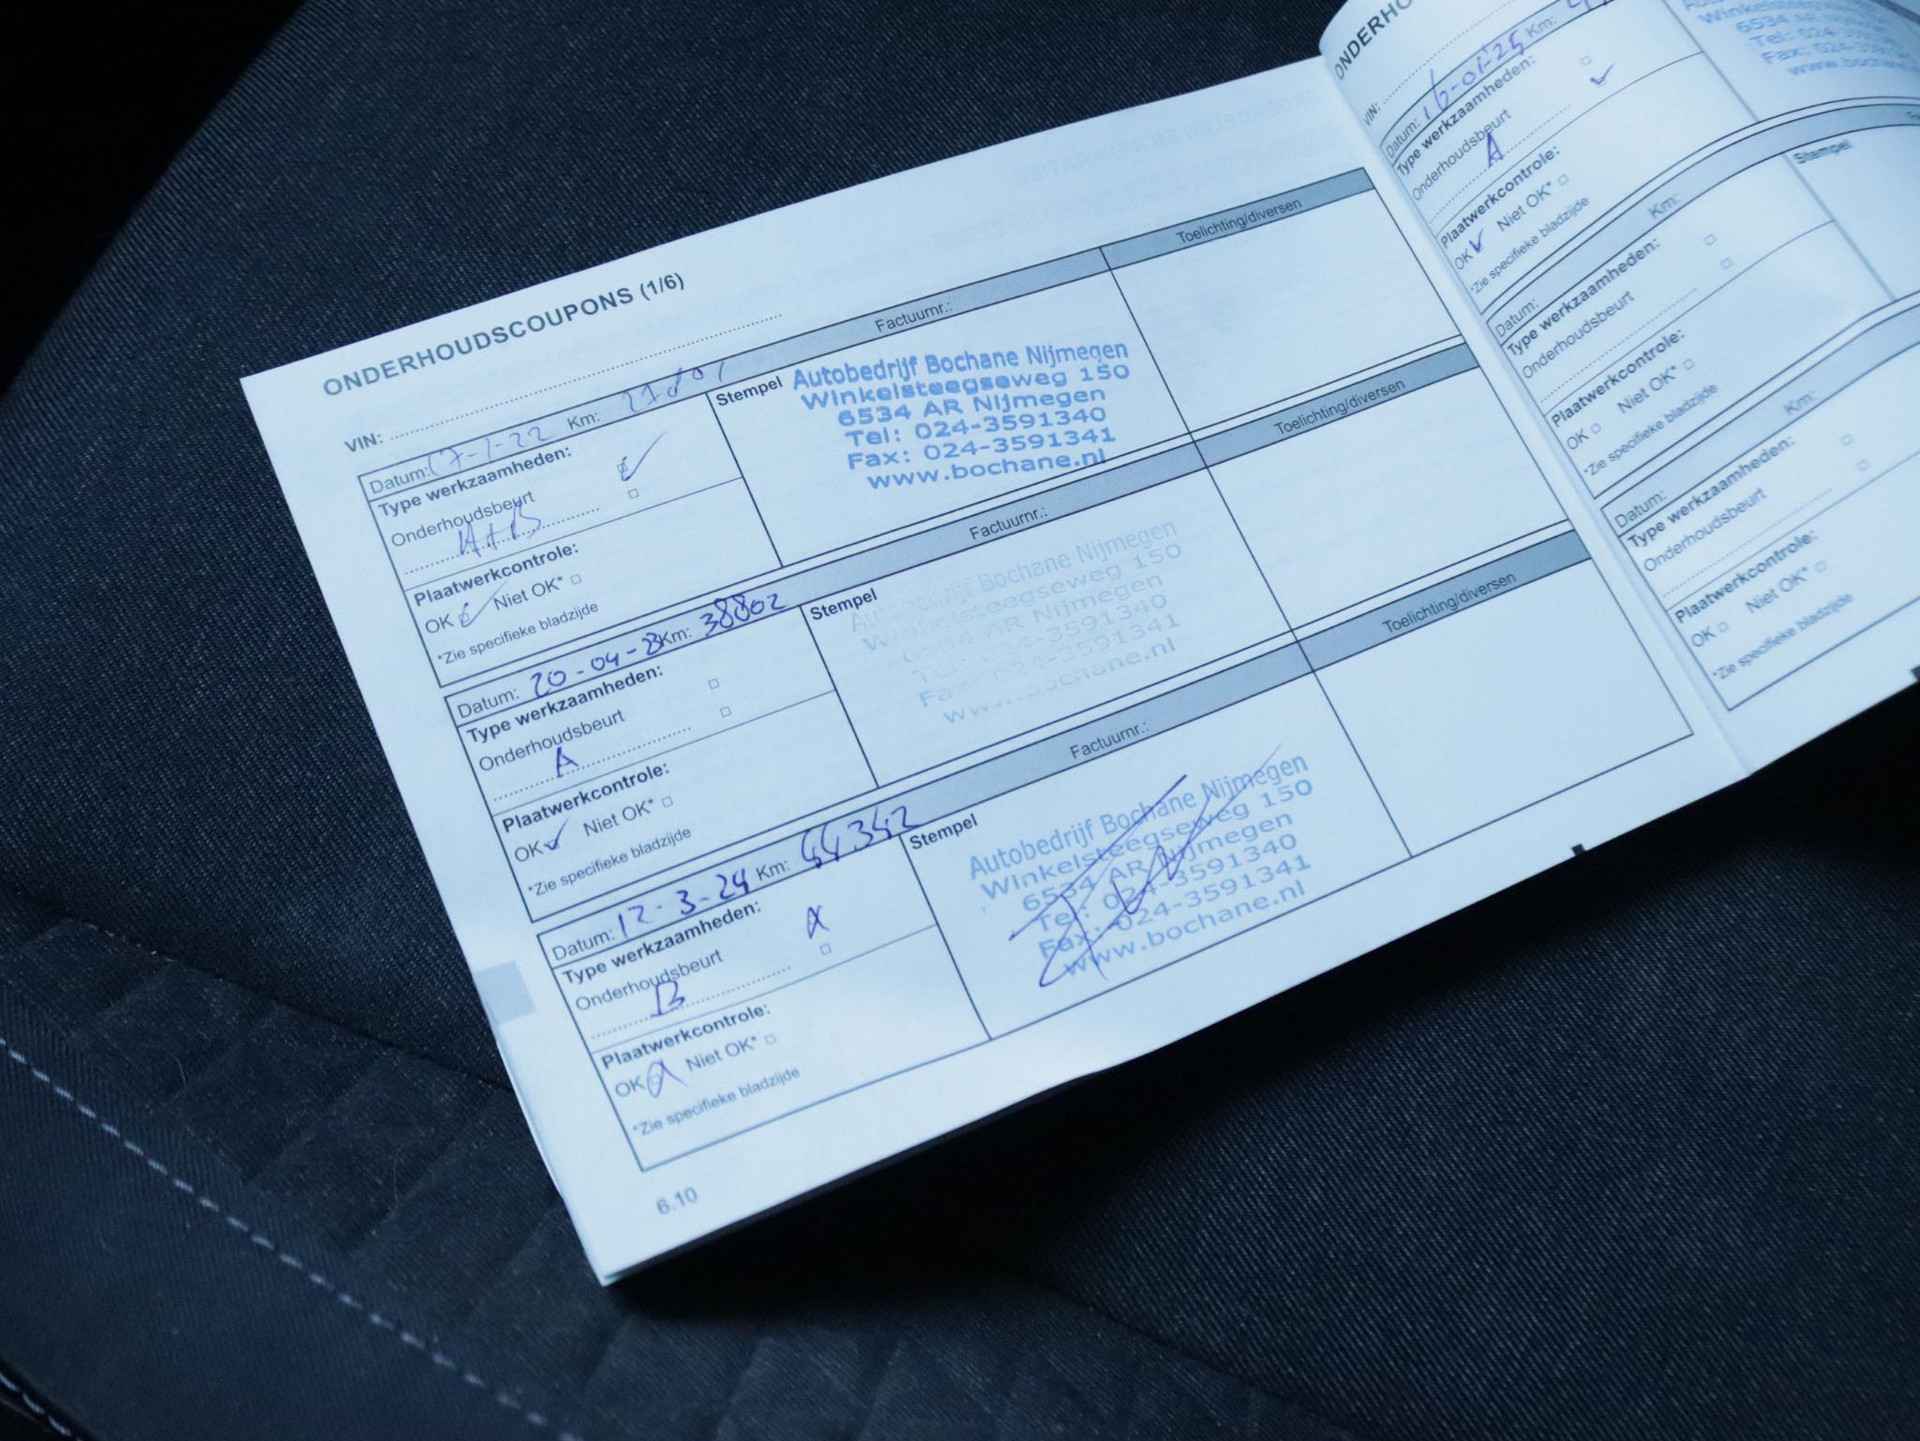 ONDERHOUDSCOUPONS (1/6)
VIN:
Datum: 17-1-22 Km: Factuurnr.: Toelichting/diversen
Type werkzaamheden:
Onderhoudsbeurt
A+B
Plaatwerkcontrole:
OK Niet OK*
*Zie specifieke bladzijde
Stempel
Autobedrijf Bochane Nijmegen
Winkelsteegseweg 150
6534 AR Nijmegen
Tel: 024-3591340
Fax: 024-3591341
www.bochane.nl
Datum: 20-04-23 Km: 38802 Factuurnr.: Toelichting/diversen
Type werkzaamheden:
Onderhoudsbeurt
A
Plaatwerkcontrole:
OK Niet OK*
*Zie specifieke bladzijde
Stempel
Bochane Nijmegen
150
AR Nijmegen
3591340
024-3591341
www.bochane.nl
Datum: 12-3-24 Km: 44.342 Factuurnr.: Toelichting/diversen
Type werkzaamheden:
Onderhoudsbeurt
B
Plaatwerkcontrole:
OK Niet OK*
*Zie specifieke bladzijde
Stempel
Autobedrijf Bochane Nijmegen
Winkelsteegseweg 150
6534 AR Nijmegen
Tel: 024-3591340
Fax: 024-3591341
www.bochane.nl
6.10
VIN:
Datum: 16-01-25 Km:
Type werkzaamheden:
Onderhoudsbeurt
A
Plaatwerkcontrole:
OK Niet OK*
*Zie specifieke bladzijde
Datum: Km:
Type werkzaamheden:
Onderhoudsbeurt
Plaatwerkcontrole:
OK Niet OK*
*Zie specifieke bladzijde
Stempel
Datum: Km:
Type werkzaamheden:
Onderhoudsbeurt
Plaatwerkcontrole:
OK Niet OK*
*Zie specifieke bladzijde